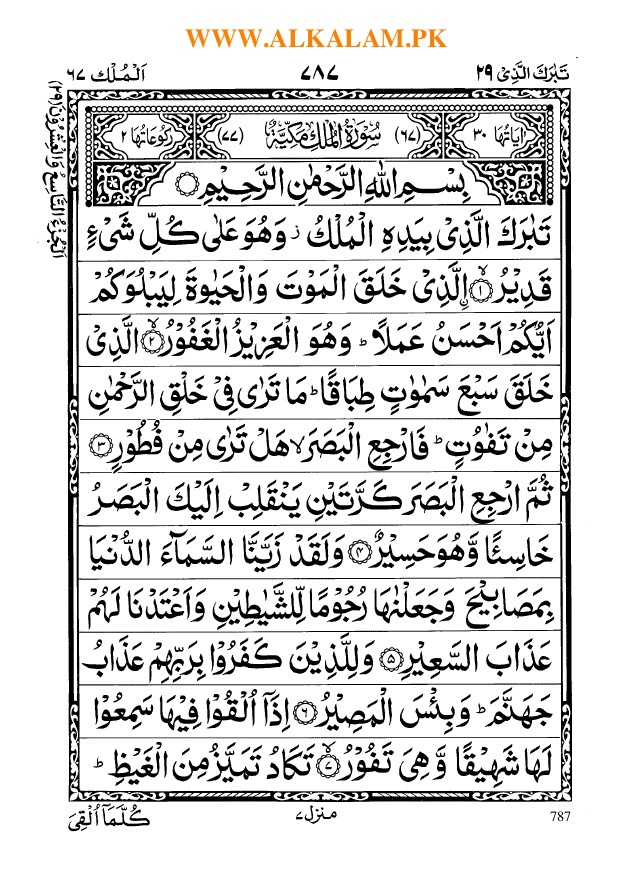 WWW.ALKALAM.PK
تَبٰرَكَ الَّذِیْ ۲۹
۷۸۷
اَلْمُلْك ۶۷
اَلْجُزْءُ التَّاسِعُ وَالْعِشْرُوْنَ (۲۹)
اٰيَاتُهَا ۳۰
(۶۷) سُوْرَةُ الْمُلْكِ مَكِّيَّةٌ (۷۷)
رُكُوْعَاتُهَا ۲
بِسْمِ اللّٰهِ الرَّحْمٰنِ الرَّحِيْمِ
تَبٰرَكَ الَّذِیْ بِيَدِهِ الْمُلْكُ ز وَهُوَ عَلٰى كُلِّ شَیْءٍ
قَدِيْرُ ۙ﴿۱﴾ اِۨلَّذِیْ خَلَقَ الْمَوْتَ وَالْحَيٰوةَ لِيَبْلُوَكُمْ
اَيُّكُمْ اَحْسَنُ عَمَلًا ؕ وَهُوَ الْعَزِيْزُ الْغَفُوْرُ ۙ﴿۲﴾ الَّذِیْ
خَلَقَ سَبْعَ سَمٰوٰتٍ طِبَاقًا ؕ مَا تَرٰى فِیْ خَلْقِ الرَّحْمٰنِ
مِنْ تَفٰوُتٍ ؕ فَارْجِعِ الْبَصَرَ ۙ هَلْ تَرٰى مِنْ فُطُوْرٍ ﴿۳﴾
ثُمَّ ارْجِعِ الْبَصَرَ كَرَّتَيْنِ يَنْقَلِبْ اِلَيْكَ الْبَصَرُ
خَاسِئًا وَّهُوَ حَسِيْرٌ ﴿۴﴾ وَلَقَدْ زَيَّنَّا السَّمَآءَ الدُّنْيَا
بِمَصَابِيْحَ وَجَعَلْنٰهَا رُجُوْمًا لِّلشَّيٰطِيْنِ وَاَعْتَدْنَا لَهُمْ
عَذَابَ السَّعِيْرِ ﴿۵﴾ وَلِلَّذِيْنَ كَفَرُوْا بِرَبِّهِمْ عَذَابُ
جَهَنَّمَ ؕ وَبِئْسَ الْمَصِيْرُ ﴿۶﴾ اِذَآ اُلْقُوْا فِيْهَا سَمِعُوْا
لَهَا شَهِيْقًا وَّهِیَ تَفُوْرُ ۙ﴿۷﴾ تَكَادُ تَمَيَّزُ مِنَ الْغَيْظِ ؕ
787
منزل ۷
كُلَّمَآ اُلْقِیَ